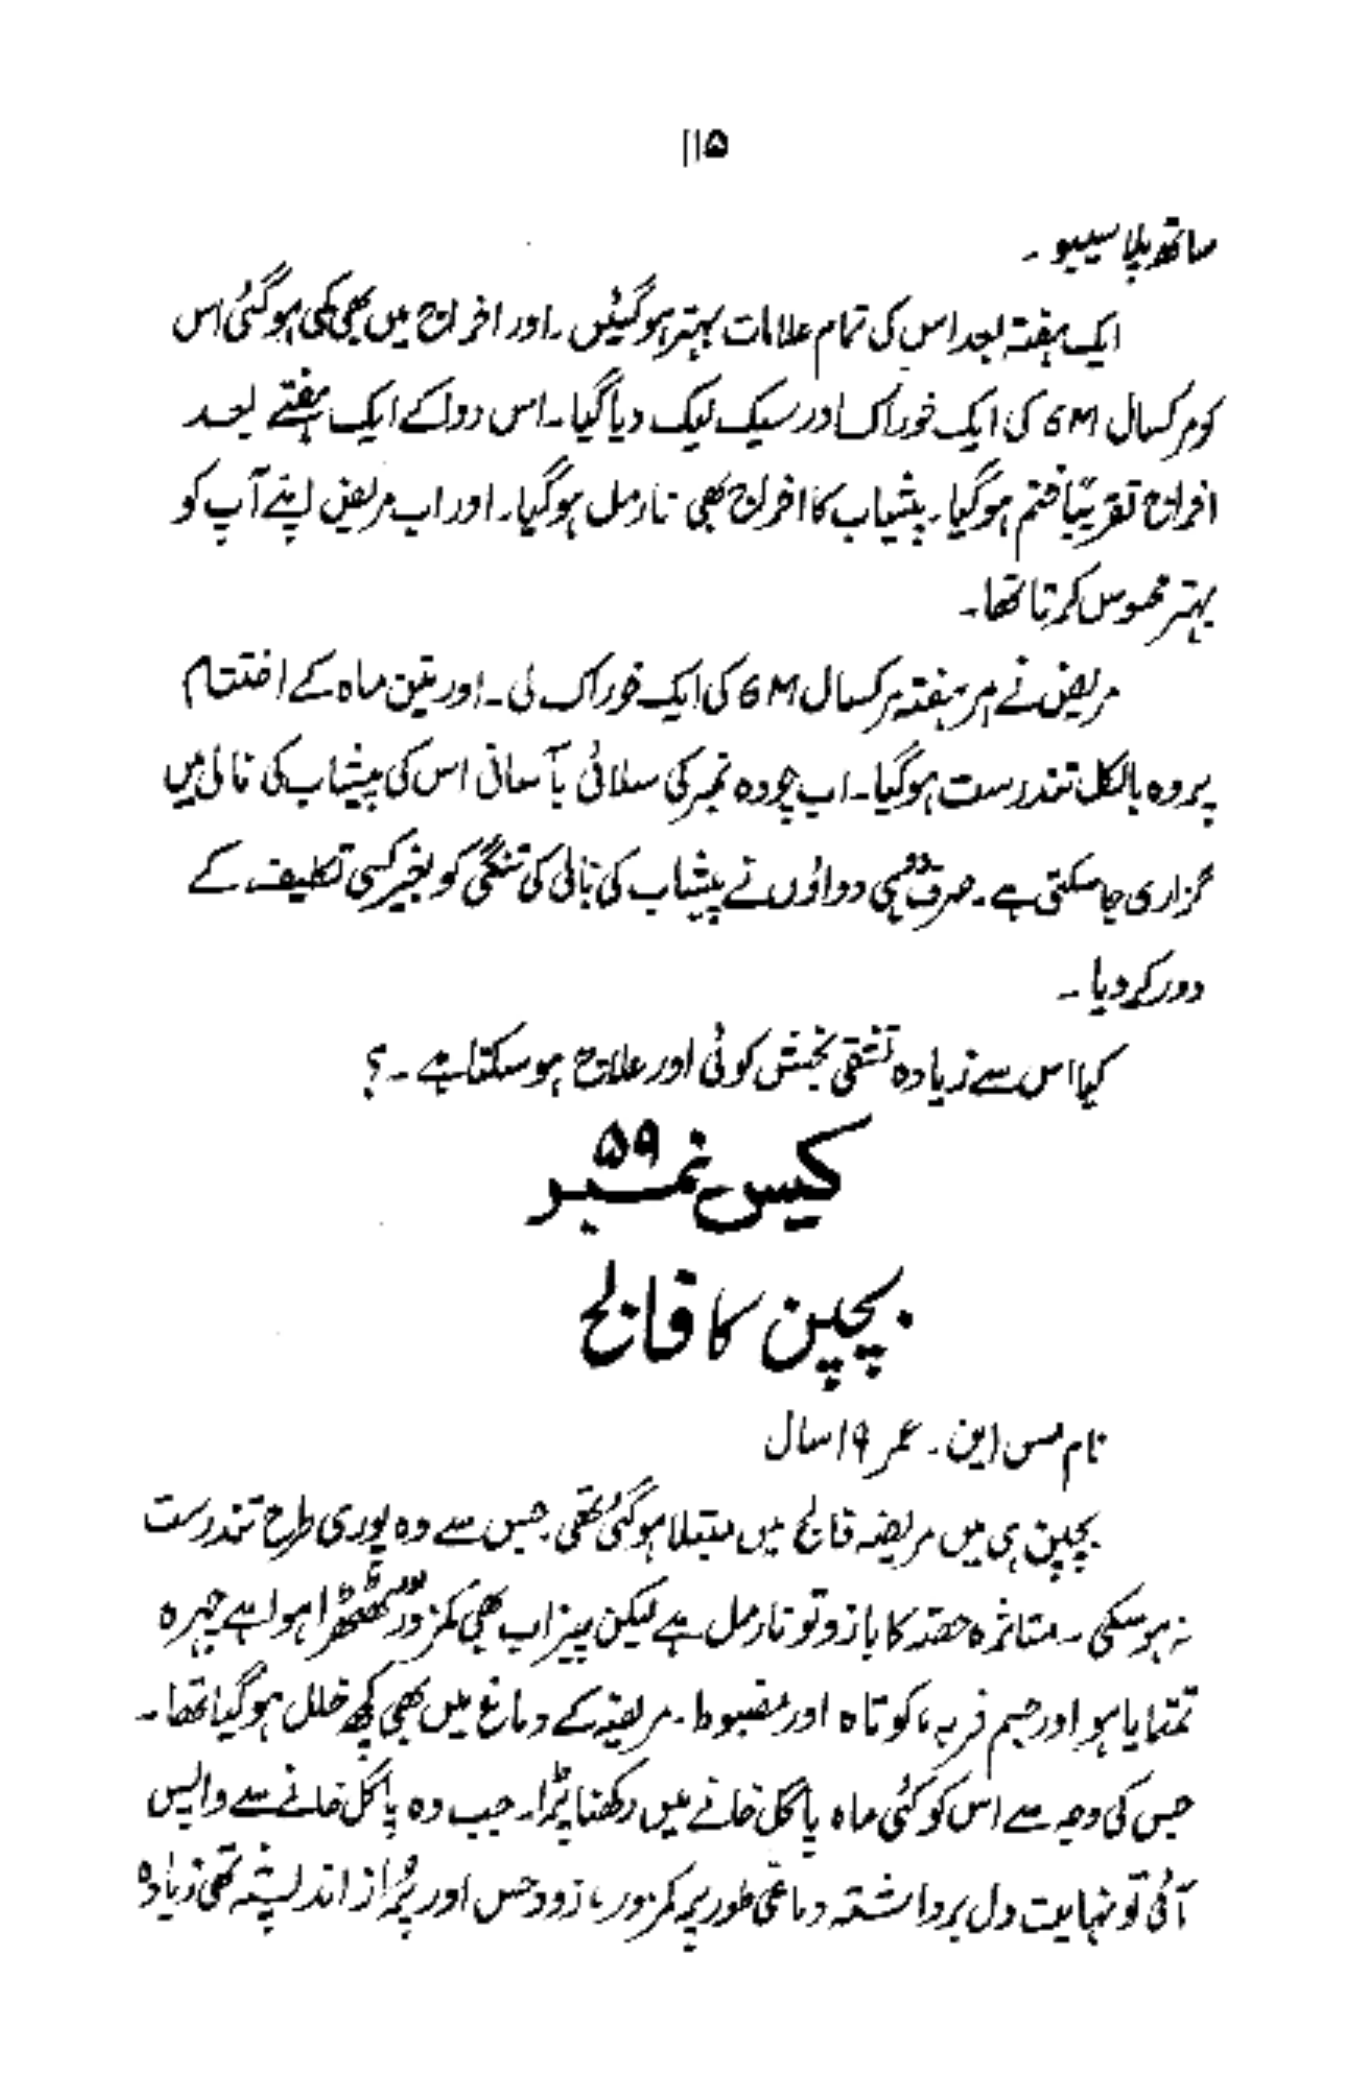 ۱۱۵
ساتھ پلاسیبو۔
ایک ہفتہ بعد اس کی تمام علامات بہتر ہوگئیں۔ اور افراج میں بھی کمی ہوگئی اس
کو مرکسال 6M کی ایک خوراک اور سیک لیک دیا گیا۔ اس دوا کے ایک ہفتے بعد
افراج تقریباً ختم ہوگیا۔ پیشاب کا افراج بھی نارمل ہوگیا۔ اور اب مریض اپنے آپ کو
بہتر محسوس کرتا تھا۔
مریض نے ہر ہفتہ مرکسال 6M کی ایک خوراک لی۔ اور تین ماہ کے اختتام
پر وہ بالکل تندرست ہوگیا۔ اب چودہ نمبر کی سلائی بآسانی اس کی پیشاب کی نالی میں
گزاری جا سکتی ہے۔ صرف دو ہی دواؤں نے پیشاب کی نالی کی تنگی کو بغیر کسی تکلیف کے
دور کر دیا۔
کیا اس سے زیادہ تشفی بخش کوئی اور علاج ہو سکتا ہے۔؟
کیس نمبر ۵۹
بچپن کا فالج
نام مس این۔ عمر ۱۹ سال
بچپن ہی میں مریضہ فالج میں مبتلا ہوگئی تھی جس سے وہ پوری طرح تندرست
نہ ہوسکی۔ متاثرہ حصہ کا بازو تو نارمل ہے لیکن پیر اب بھی کمزور اور ٹھٹھڑا ہوا ہے چہرہ
تمتایا ہو اور جسم فربہ، کوتاہ اور مضبوط۔ مریضہ کے دماغ میں بھی کچھ خلل ہوگیا تھا۔
جس کی وجہ سے اس کو کئی ماہ پاگل خانے میں رکھنا پڑا۔ جب وہ پاگل خانے سے واپس
آئی تو نہایت دل برداشتہ دماغی طور پر کمزور، زود حس اور پُر از اندیشہ تھی زیادہ